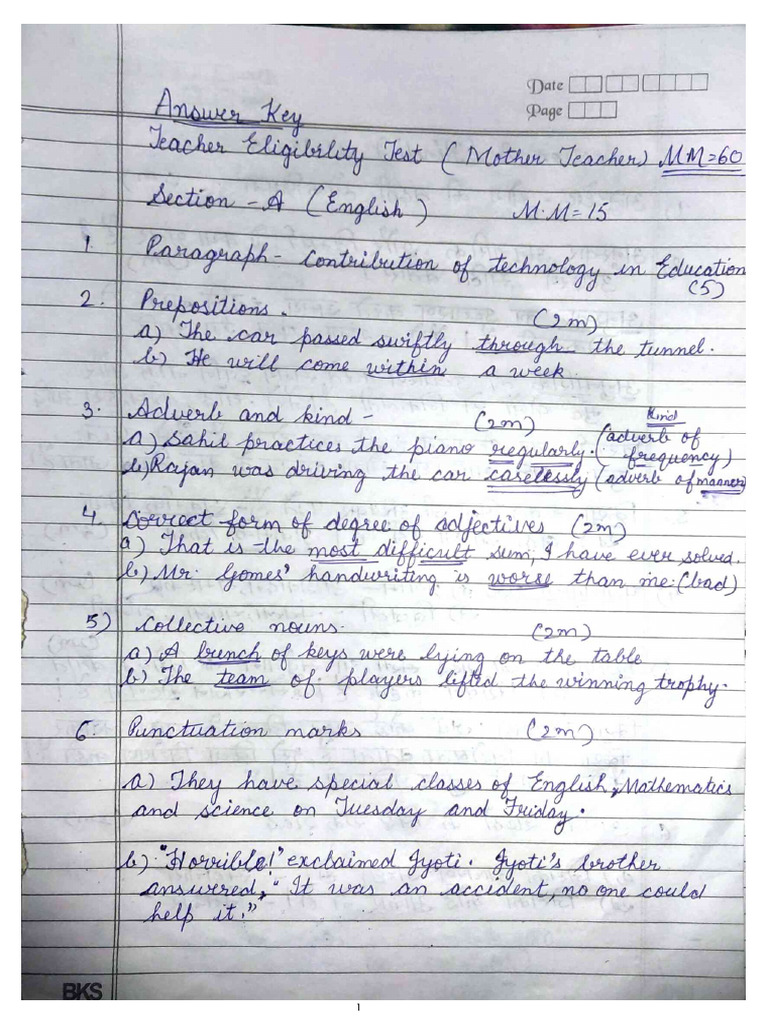 Date
Page
Answer Key
Teacher Eligibility Test (Mother Teacher) MM=60
Section - A (English) M.M=15
1. Paragraph - Contribution of technology in Education
(5)
2. Prepositions. (2m)
a) The car passed swiftly through the tunnel.
b) He will come within a week.
3. Adverb and kind - (2m) Kind
a) Sahil practices the piano regularly. (adverb of frequency)
b) Rajan was driving the car carelessly (adverb of manner)
4. Correct form of degree of adjectives (2m)
a) That is the most difficult sum, I have ever solved.
b) Mr. Gomes' handwriting is worse than me. (bad)
5) Collective nouns. (2m)
a) A bunch of keys were lying on the table
b) The team of players lifted the winning trophy.
6. Punctuation marks (2m)
a) They have special classes of English, Mathematics
and science on Tuesday and Friday.
b) "Horrible!" exclaimed Jyoti. Jyoti's brother
answered, "It was an accident, no one could
help it."
BKS
1